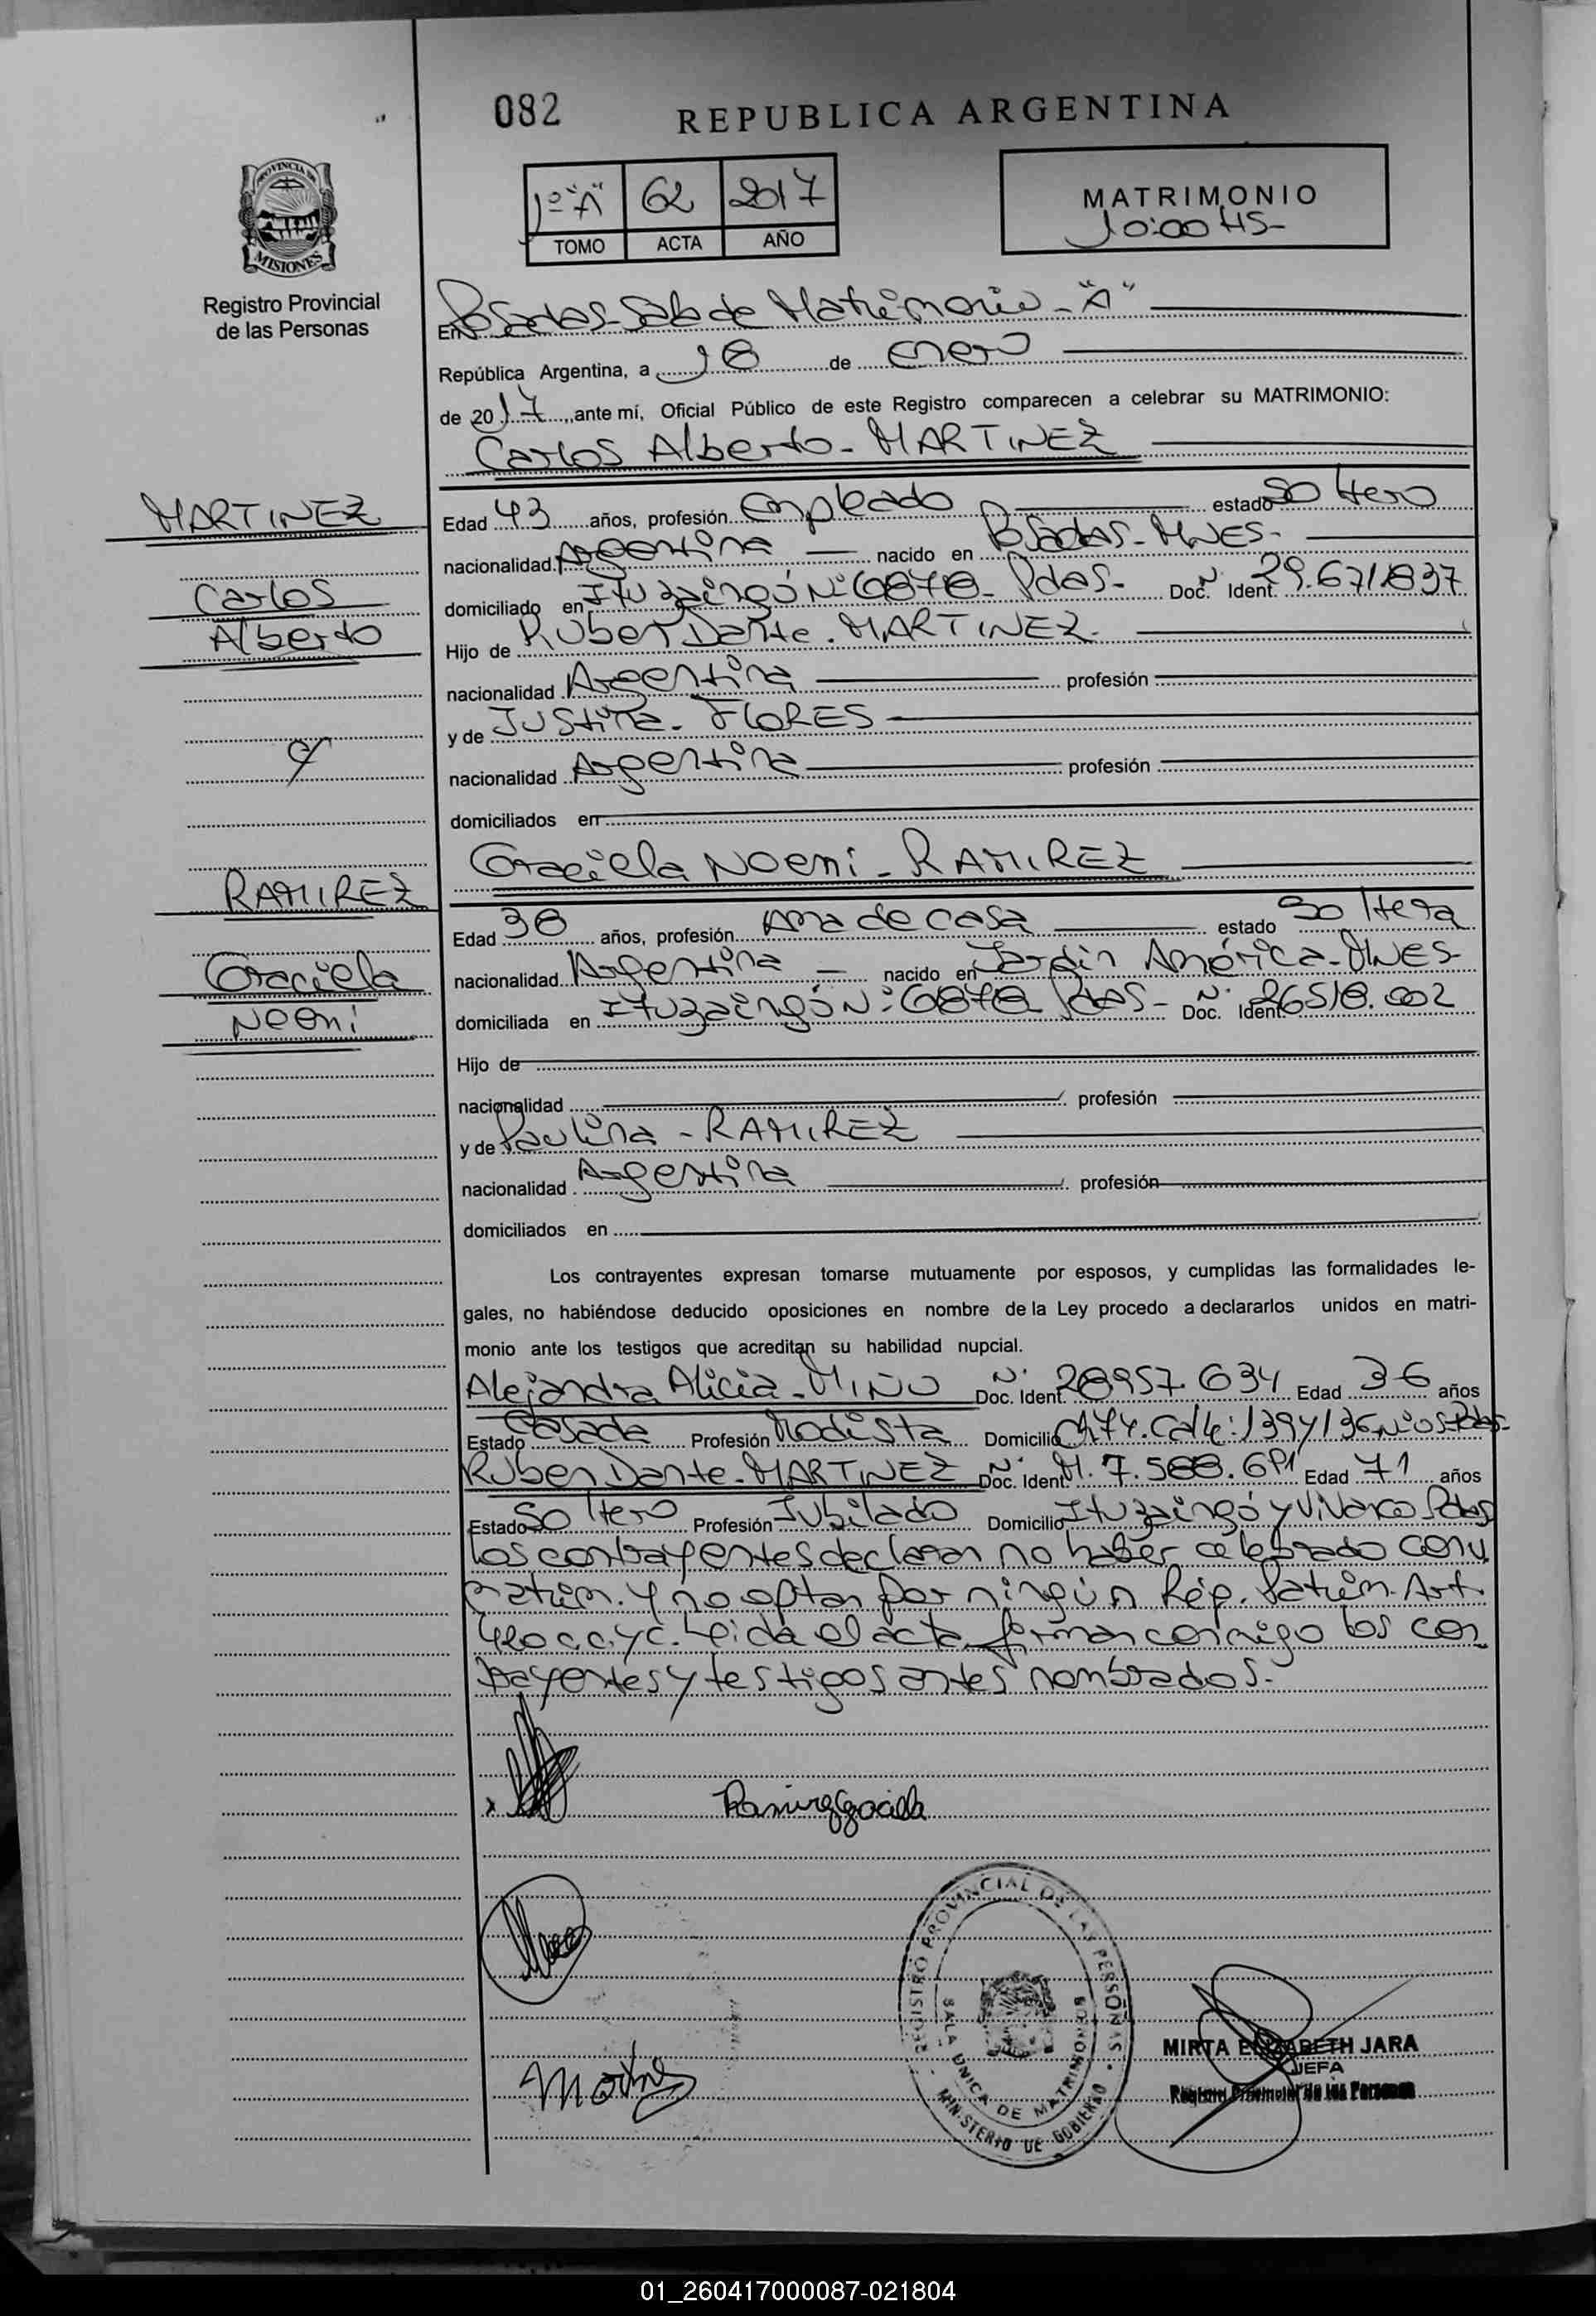 082
REPUBLICA ARGENTINA
PROVINCIA DE
MISIONES
Registro Provincial
de las Personas
1º "A" 62 2017
TOMO ACTA AÑO
MATRIMONIO
10:00 HS-
En Posadas-Sala de Matrimonio-"A"
República Argentina, a 18 de enero
de 2017, ante mí, Oficial Público de este Registro comparecen a celebrar su MATRIMONIO:
Carlos Alberto - MARTINEZ
MARTINEZ
Carlos
Alberto
Edad 43 años, profesión empleado estado soltero
nacionalidad Argentina nacido en Posadas-MNES-
domiciliado en Ituzaingó Nº 6878- Pdas- Doc. Nº Ident. 29.671.837
Hijo de Ruben Dante. MARTINEZ.
nacionalidad Argentina profesión
y de Justina. FLORES
nacionalidad Argentina profesión
domiciliados en
Graciela Noemi - RAMIREZ
c/
RAMIREZ
Graciela
Noemi
Edad 38 años, profesión Ama de casa estado soltera
nacionalidad Argentina nacido en Jardín América-MNES-
domiciliada en Ituzaingó Nº: 6878 Pdas- Doc. Nº Ident. 26518.002
Hijo de
nacionalidad profesión
y de Paulina - RAMIREZ
nacionalidad Argentina profesión
domiciliados en
Los contrayentes expresan tomarse mutuamente por esposos, y cumplidas las formalidades le-
gales, no habiéndose deducido oposiciones en nombre de la Ley procedo a declararlos unidos en matri-
monio ante los testigos que acreditan su habilidad nupcial.
Alejandra Alicia - MIÑO Doc. Nº Ident. 28957.634 Edad 36 años
Estado Casada Profesión Modista Domicilio Ch74. Calle:
Ruben Dante-MARTINEZ Doc. Nº Ident. M. 7.588.691 Edad 71 años
Estado Soltero Profesión Jubilado Domicilio Ituzaingó y Vivanco Pdas
Los contrayentes declaran no haber celebrado conv.
matrim. y no optan por ningún Rég. Patrim. Art.
420 c.c.yc. Leida el acta, firman conmigo los con
trayentes y testigos antes nombrados.-
Ramirez Graciela
REGISTRO PROVINCIAL DE LAS PERSONAS
SALA UNICA DE MATRIMONIOS
MINISTERIO DE GOBIERNO
MIRTA ELIZABETH JARA
JEFA
Registro Provincial de las Personas
01_260417000087-021804